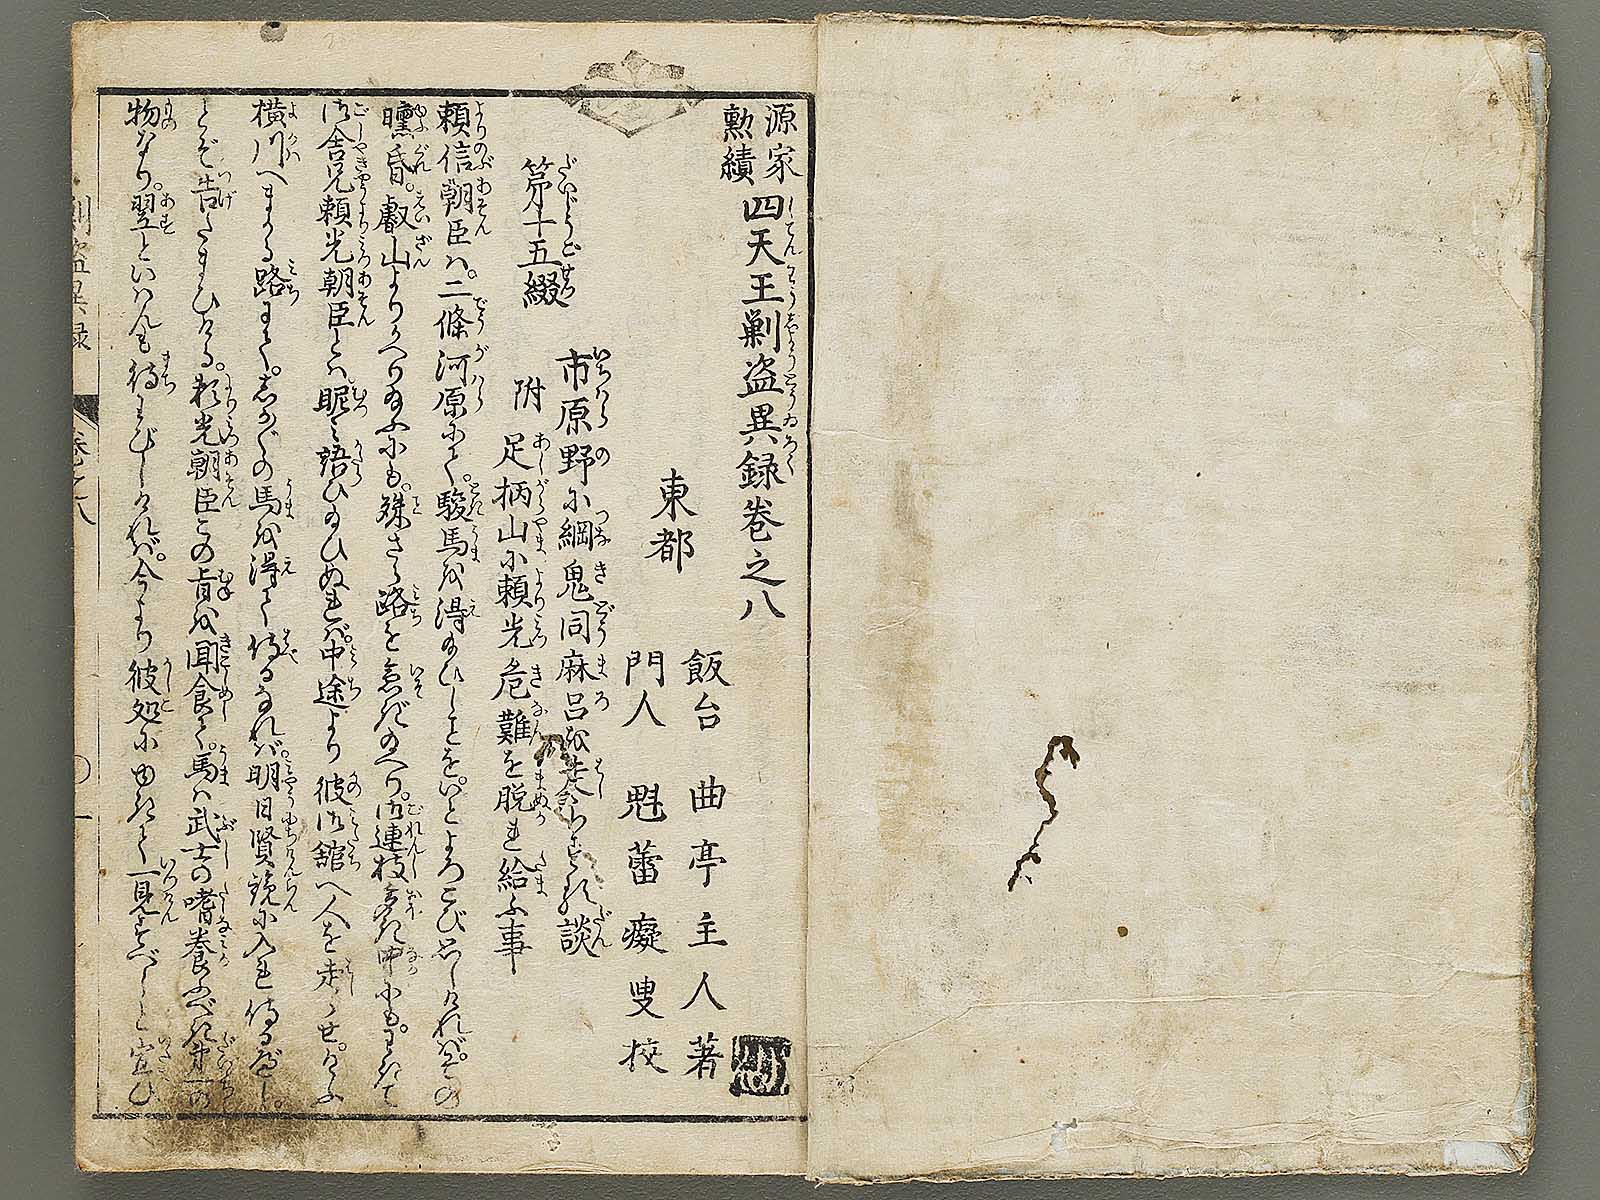 源家
勲績
四天王剿盗異録巻之八
東都
飯台 曲亭主人著
門人 魁蕾癡叟校
第十五綴 市原野に綱鬼同麻呂を走らする談
附 足柄山に頼光危難を脱れ給ふ事
頼信朝臣は。二條河原にて。駿馬を得給ひしことを。いとよろこび思しければ。その
曛昏。叡山よりかへり給ふにも。殊さら路を急ぎ給へり。御連枝多き中にも。わきて
御舎兄頼光朝臣とは。昵く語ひ給ひぬれば。中途より彼御舘へ人を走らせ。けふ
横川へまゐる路にて。しか〴〵の馬を得て侍るなれば。明日賢覧に入れ侍るべし。
とぞ告たまひける。頼光朝臣この旨を聞食て。馬は武士の嗜養ふべき第一の
物なり。翌といはんも待わびしければ。今より彼処にゆきて一見すべしと宣ひ
剿盗異録 巻之八 〇一